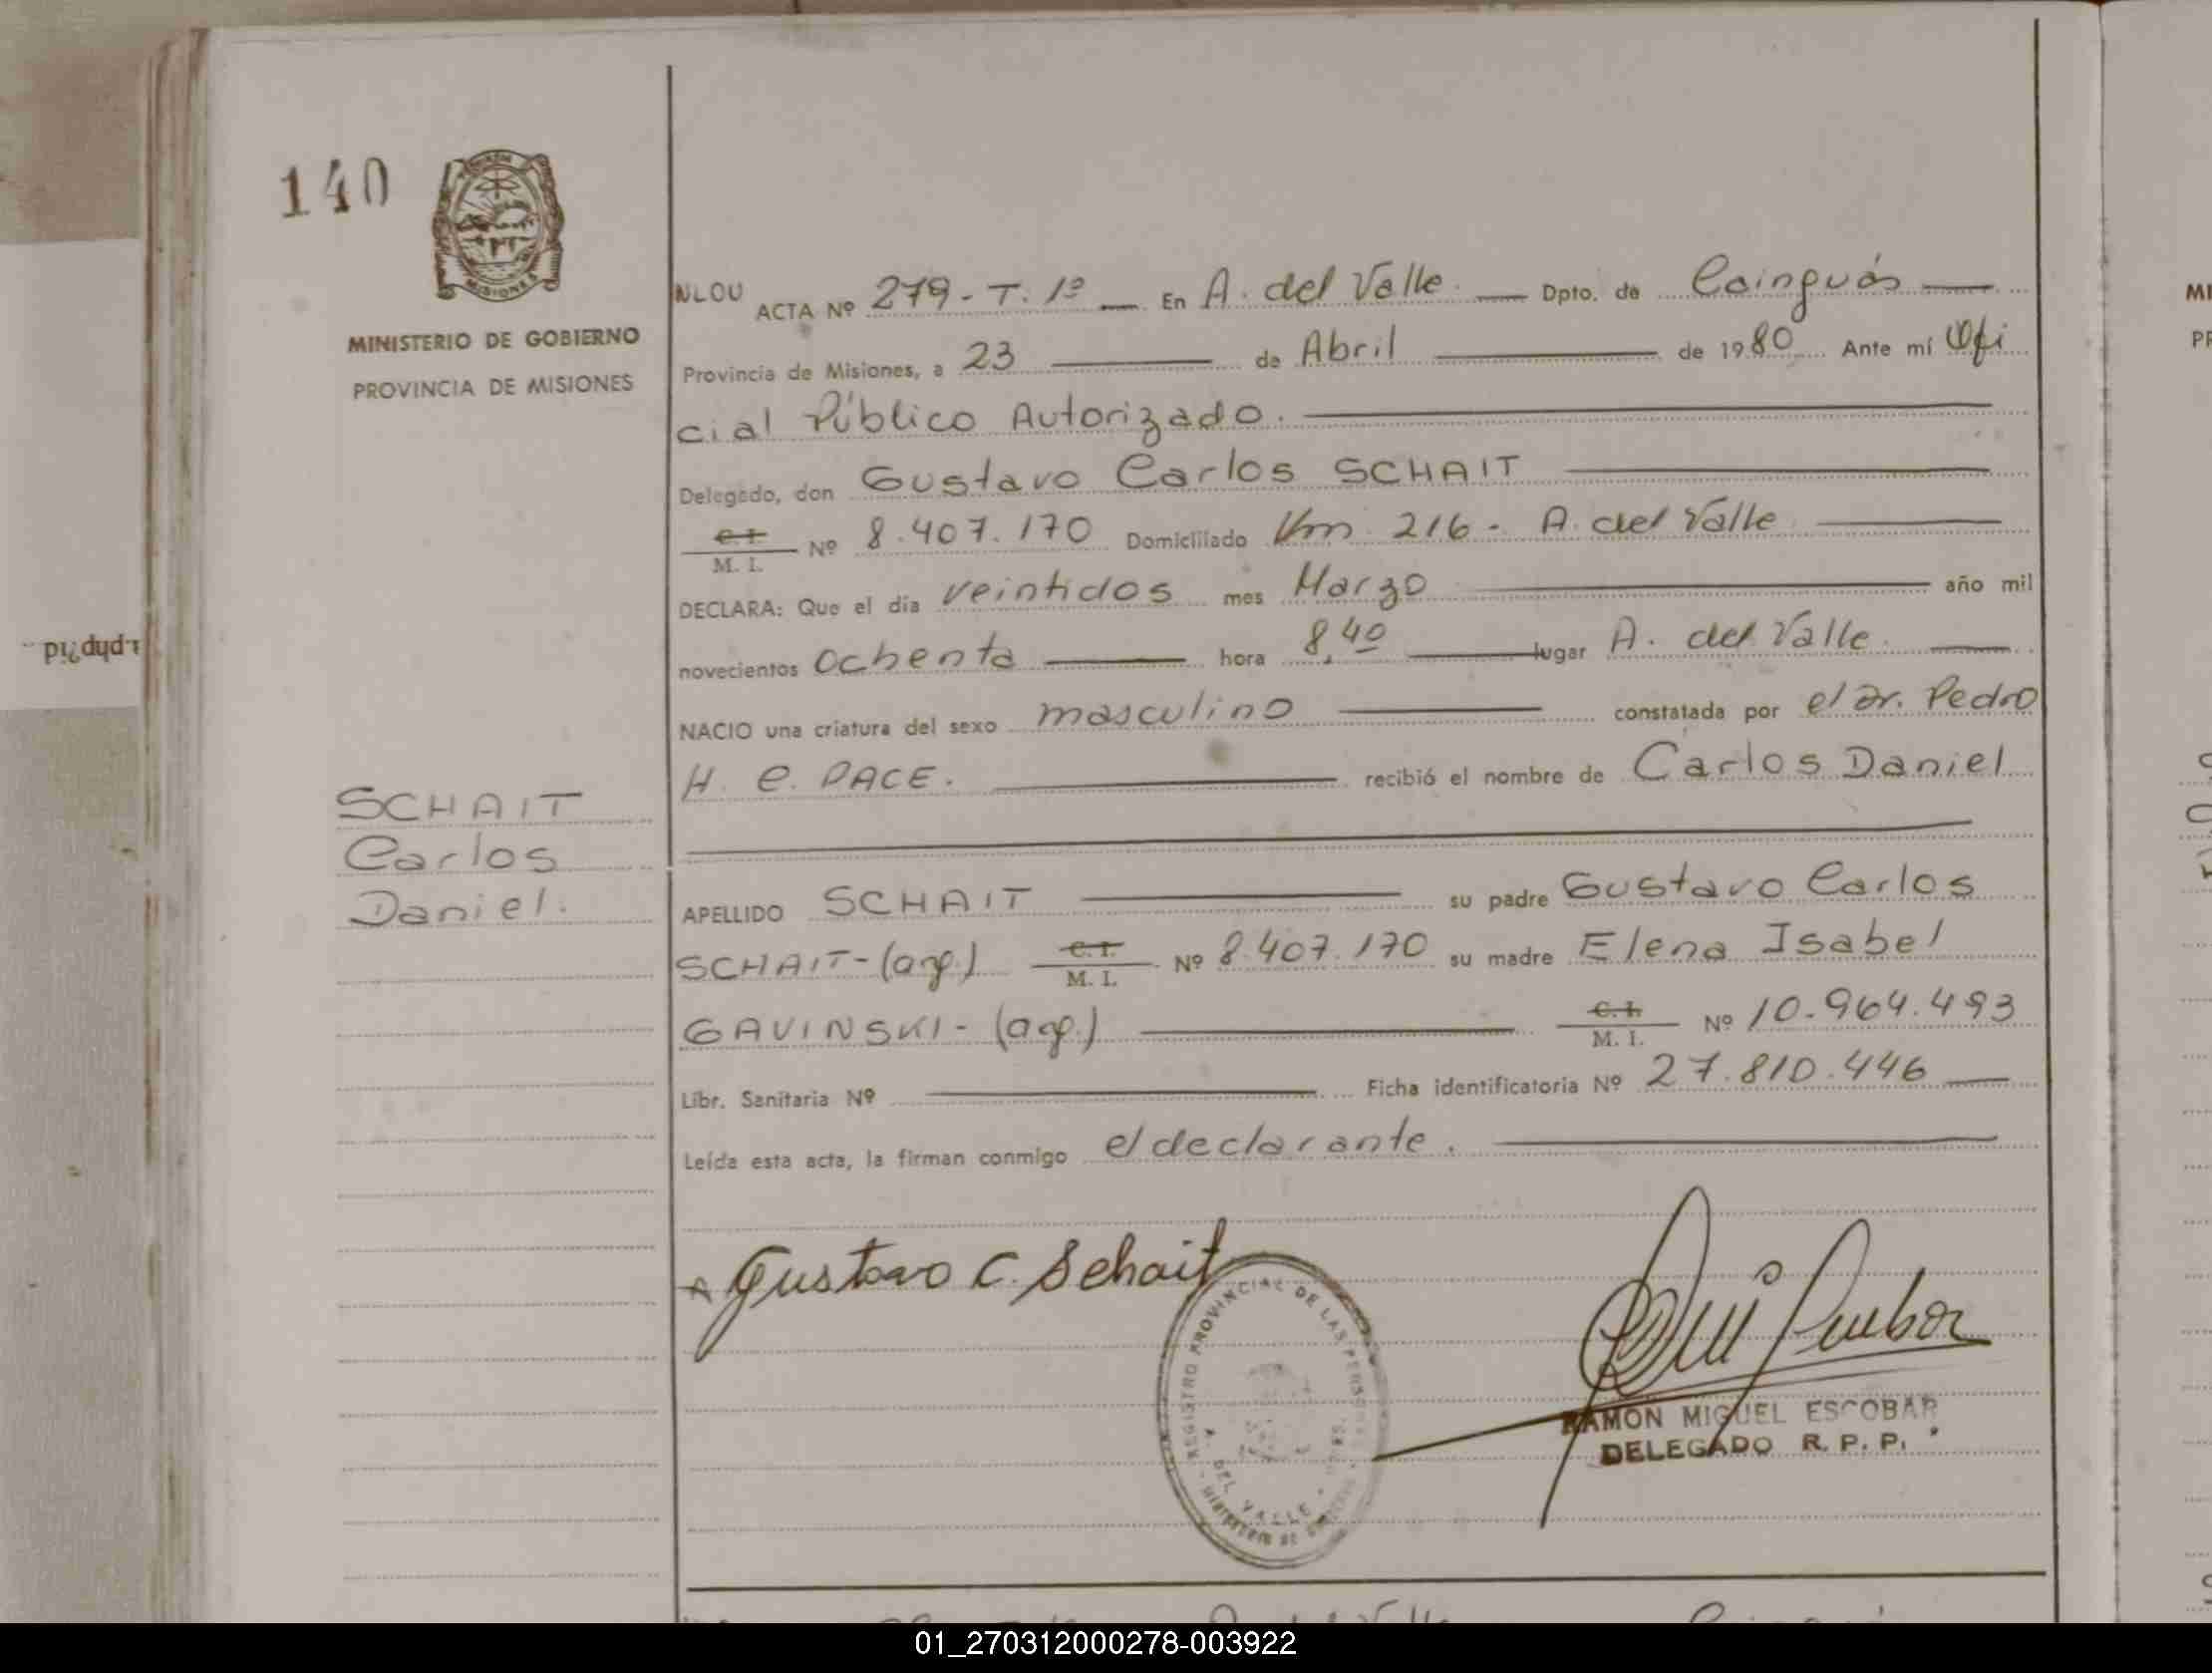 140
MISIONES
MINISTERIO DE GOBIERNO
PROVINCIA DE MISIONES
SCHAIT
Carlos
Daniel.
NLOU ACTA Nº 279 - T. 1º — En A. del Valle. — Dpto. de Cainguás —
Provincia de Misiones, a 23 — de Abril — de 1980 Ante mí Ofi
cial Público Autorizado. —
Delegado, don Gustavo Carlos SCHAIT —
C. I. / M. I. Nº 8.407.170 Domiciliado Km 216 - A. del Valle —
DECLARA: Que el día veintidos mes Marzo — año mil
novecientos ochenta — hora 8,40 — lugar A. del Valle. —
NACIO una criatura del sexo masculino — constatada por el Dr. Pedro
H. C. PACE. — recibió el nombre de Carlos Daniel
APELLIDO SCHAIT — su padre Gustavo Carlos
SCHAIT - (arg.) C. I. / M. I. Nº 8.407.170 su madre Elena Isabel
GAVINSKI - (arg.) — C. I. / M. I. Nº 10.964.493
Libr. Sanitaria Nº — Ficha identificatoria Nº 27.810.446 —
Leída esta acta, la firman conmigo el declarante. —
Gustavo C. Schait
REGISTRO PROVINCIAL DE LAS PERSONAS
A. DEL VALLE
MINISTERIO DE
RAMON MIGUEL ESCOBAR
DELEGADO R. P. P.
01_270312000278-003922